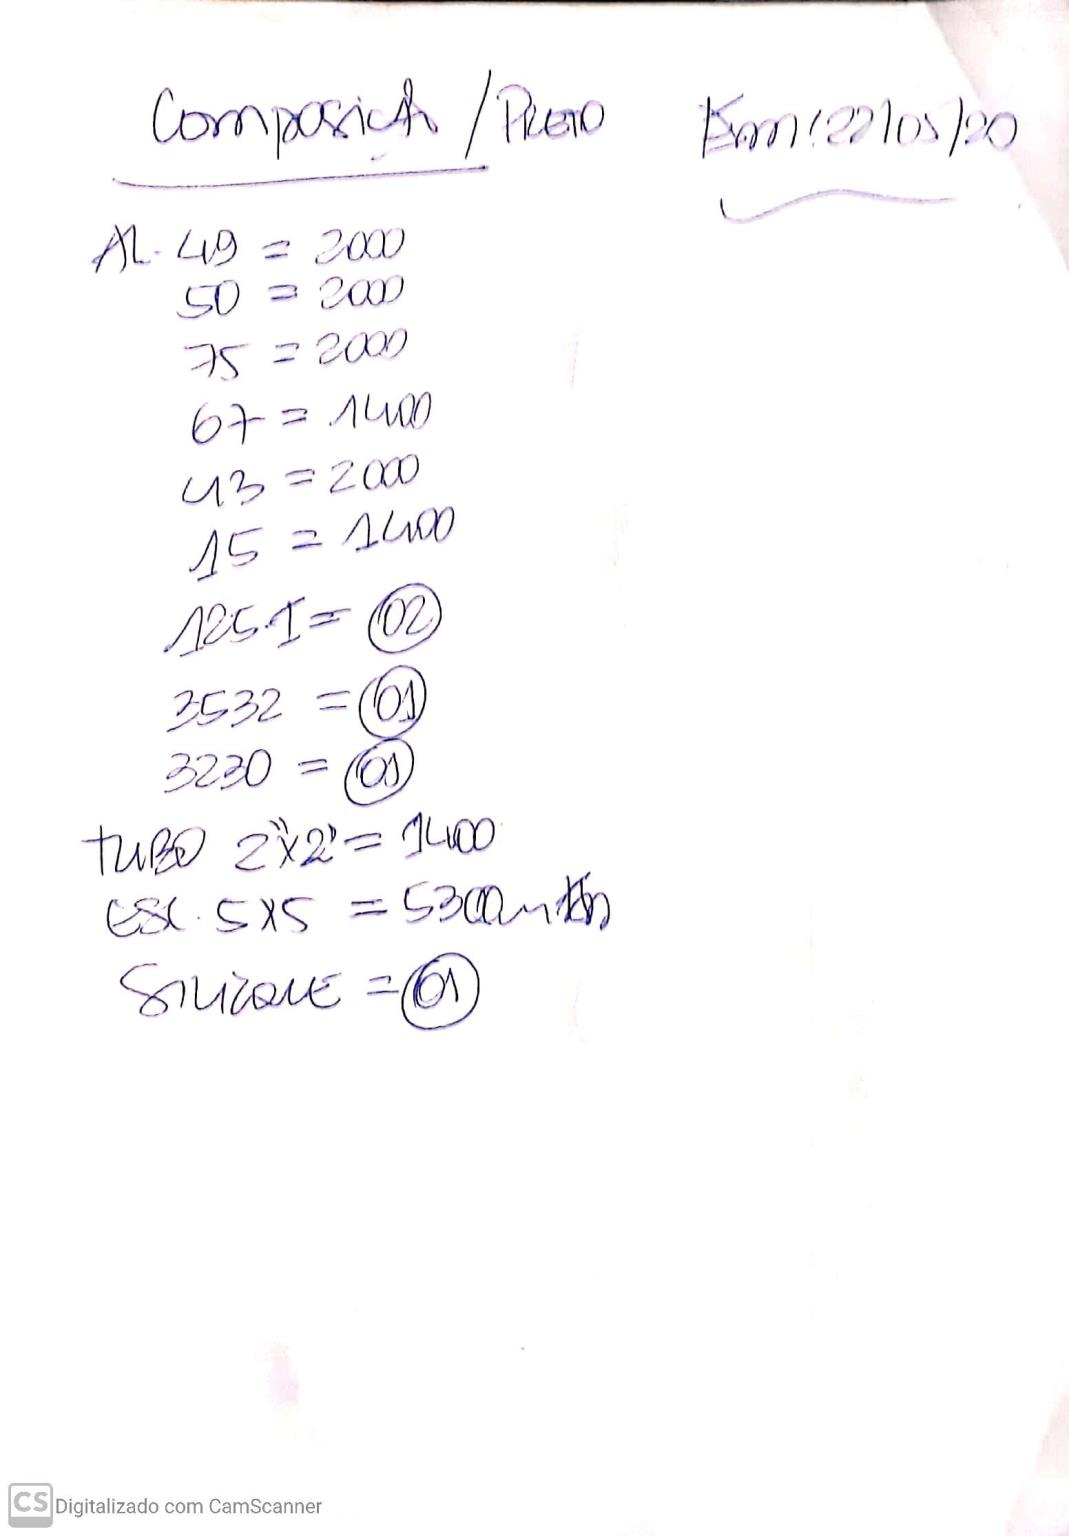 Composição / PRETO Em: 22/05/20
AL. 49 = 2000
50 = 2000
75 = 2000
67 = 1400
43 = 2000
15 = 1400
125.I = 02
3532 = 01
3230 = 01
TUBO 2"x2" = 1400
ESC. 5x5 = 5300
SILICONE = 01
CS Digitalizado com CamScanner